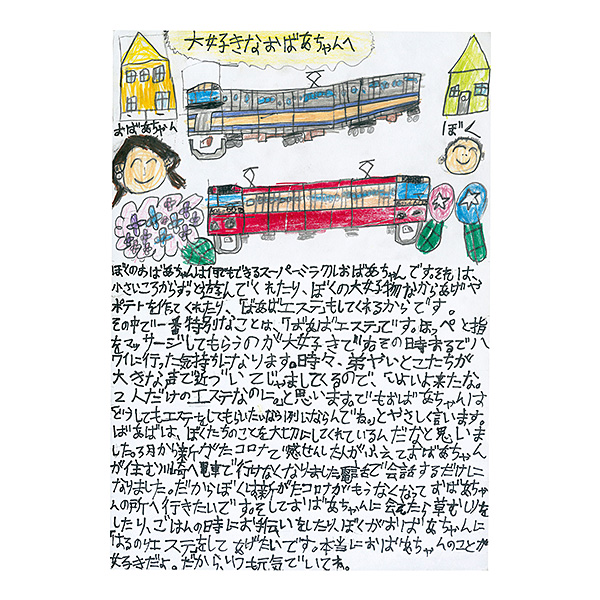 大好きなおばあちゃんへ
おばあちゃん
ぼく
ぼくのおばあちゃんは何でもできるスーパーミラクルおばあちゃんです。それは、
小さいころからずっと遊んでくれたり、ぼくの大好物なからあげや
ポテトを作てくれたり、「ばあばエステ」もしてくれるからです。
その中で一番特別なことは、「ばあばエステ」です。ほっぺと指
をマッサージしてもらうのが大好きで、その時まるでハ
ワイに行った気持ちになります。時々、弟やいとこたちが
大きな声で近づいてじゃましてくるので、
2人だけのエステなのに。」と思います。でもおばあちゃんは
「どうしてもエステをしてもらいたいなら1列にならんでね。」とやさしく言います。
ばあばは、ぼくたちのことを大切にしてくれているんだなと思いま
した。3月から新がたコロナで感せんした人がふえておばあちゃん
が住む川崎へ電車で行けなくなりました。電話で会話するだけに
なりました。だからぼくは新がたコロナがもうなくなっておばあちゃ
んの所へ行きたいです。そしておばあちゃんに会えたら草むしりを
したり、ごはんの時にお手伝いをしたり、ぼくがおばあちゃんに
「はるのりエステ」をしてあげたいです。本当におばあちゃんのことが
大好きだよ。だから、いつも元気でいてね。